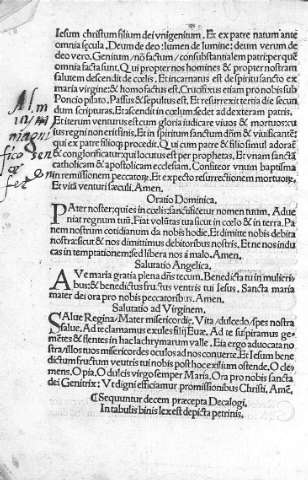 Iesum christum filium dei vnigenitum. Et ex patre natum ante
omnia sęcula. Deum de deo: lumen de lumine: deum verum de
deo vero. Genitum/nō factum/consubstantialem patri: per quē
omnia facta sunt. Qui propter nos homines & propter nostram
salutem descendit de cœlis. Et incarnatus est de spiritu sancto ex
maria virgine: & homo factus est. Crucifixus etiam pro nobis sub
Poncio pilato. Passus & sepultus est. Et resurrexit tertia die secun
dum scripturas. Et ascendit in cœlum: sedet ad dexteram patris.
Et iterum venturus est cum gloria iudicare viuos & mortuos: cu
ius regni non erit finis. Et in spiritum sanctum dn̄m & viuificantē:
qui ex patre filioq; procedit. Qui cum patre & filio simul adorat̄
& conglorificatur: qui locutus est per prophetas. Et vnam sanctā
catholicam & apostolicam ecclesiam. Confiteor vnum baptisma
in remissionem peccatoꝝ. Et expecto resurrectionem mortuoꝝ.
Et vitā venturi sæculi. Amen.
Oratio Dominica.
PAter noster: qui es in cœlis: sanctificetur nomen tuum. Adue
niat regnum tuū. Fiat volūtas tua sicut in cœlo & in terra. Pa
nem nostrum cotidianum da nobis hodie. Et dimitte nobis debita
nostra: sicut & nos dimittimus debitoribus nostris. Et ne nos indu
cas in temptationem: sed libera nos a malo. Amen.
Salutatio Angelica.
AVe maria gratia plena dn̄s tecum. Benedicta tu in mulieri
bus: & benedictus fruct9 ventris tui Iesus. Sancta maria
mater dei ora pro nobis peccatoribus. Amen.
Salutatio ad Virginem.
SAlue Regina/Mater misericordię. Vita/dulcedo/spes nostra
Salue. Ad te clamamus exules filij Euæ. Ad te suspiramus ge-
mētes & flentes in hac lachrymarum valle. Eia ergo aduocata no
stra/illos tuos misericordes oculos ad nos conuerte. Et Iesum bene
dictum fructum ventris tui nobis post hoc exilium ostende. O cle
mens. O pia. O dulcis virgo semper Maria. Ora pro nobis sancta
dei Genitrix: Vt digni efficiamur promissionibus Christi. Amē.
¶ Sequuntur decem præcepta Decalogi.
In tabulis binis lex est depicta petrinis.